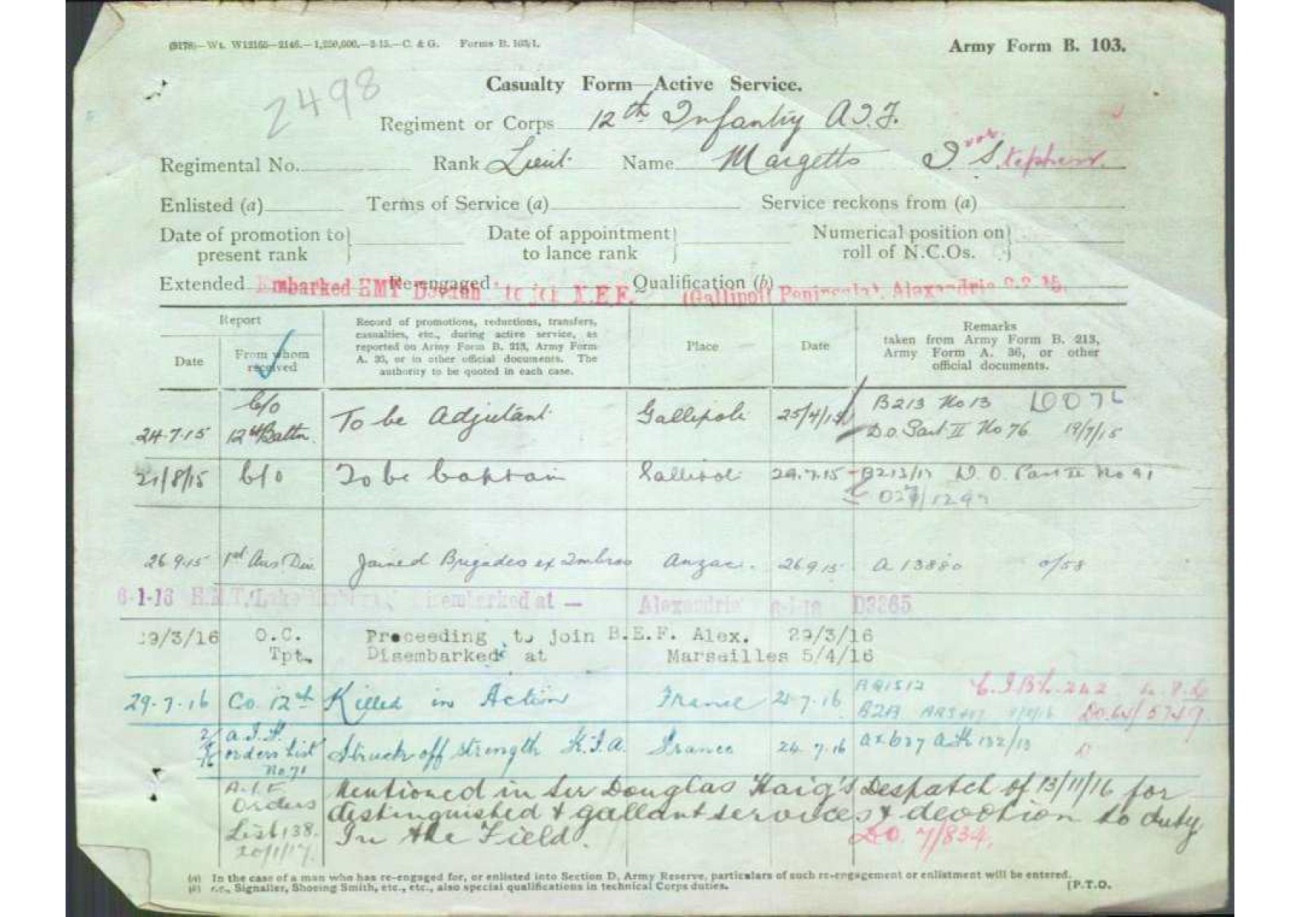 (9178)—Wt. W12165—2146.—1,250,000.—2-15.—C. & G. Forms B. 103/1.
Army Form B. 103.
2498
Casualty Form—Active Service.
Regiment or Corps 12th Infantry A.I.F.
Regimental No. Rank Lieut. Name Margetts Ivor Stephen.
Enlisted (a) Terms of Service (a) Service reckons from (a)
Date of promotion to present rank Date of appointment to lance rank Numerical position on roll of N.C.Os.
Extended Re-engaged Qualification (b)
Embarked (Gallipoli Peninsula), Alexandria 15.
Report
Date From whom received Record of promotions, reductions, transfers, casualties, etc., during active service, as reported on Army Form B. 213, Army Form A. 36, or in other official documents. The authority to be quoted in each case. Place Date Remarks taken from Army Form B. 213, Army Form A. 36, or other official documents.
24.7.15 C/o 12th Battn. To be Adjutant Gallipoli 25/4/15 B213 No 13
D.O. Part II No 76 19/7/15
21/8/15 C/o To be Captain Gallipoli B213/17 D.O. Part II No 91
26.9.15 1st Aus Div Joined Brigades ex Imbros Anzac. 26.9.15 A 13880 0/58
6-1-16 H.M.T. Disembarked at — Alexandria D3265
29/3/16 O.C. Tpt. Proceeding to join B.E.F. Alex. 29/3/16
Disembarked at Marseilles 5/4/16
29.7.16 Co 12th Killed in Action France 7.16
A.I.F. orders list No. 71 Struck off strength K.I.A. France 24.7.16
A.I.F. Orders List 138. 20/1/17. Mentioned in Sir Douglas Haig's Despatch of 13/11/16 for
distinguished & gallant services & devotion to duty
In the Field. DO. 7/834.
(a) In the case of a man who has re-engaged for, or enlisted into Section D, Army Reserve, particulars of such re-engagement or enlistment will be entered.
(b) e.g., Signaller, Shoeing Smith, etc., etc., also special qualifications in technical Corps duties.
[P.T.O.